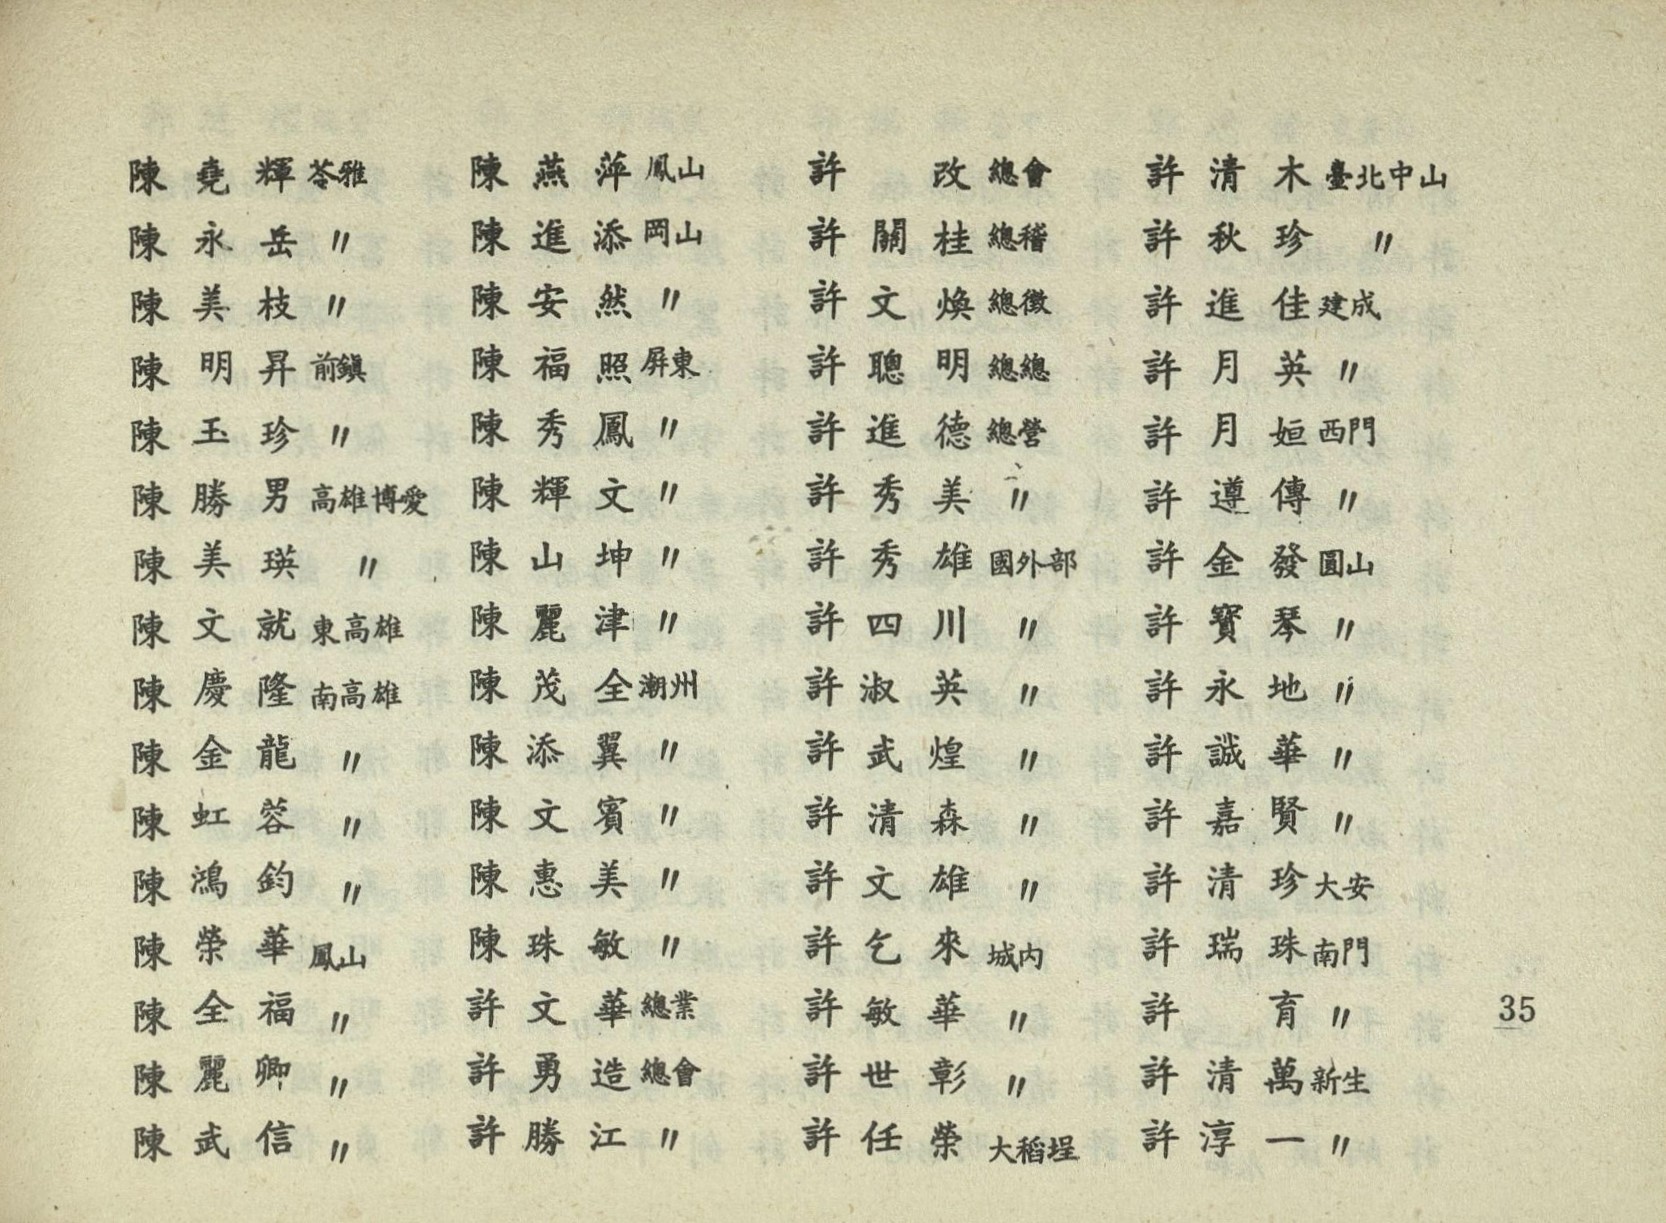 陳堯輝 苓雅
陳永岳 〃
陳美枝 〃
陳明昇 前鎮
陳玉珍 〃
陳勝男 高雄博愛
陳美瑛 〃
陳文就 東高雄
陳慶隆 南高雄
陳金龍 〃
陳虹蓉 〃
陳鴻鈞 〃
陳榮華 鳳山
陳全福 〃
陳麗卿 〃
陳武信 〃
陳燕萍 鳳山
陳進添 岡山
陳安然 〃
陳福照 屏東
陳秀鳳 〃
陳輝文 〃
陳山坤 〃
陳麗津 〃
陳茂全 潮州
陳添翼 〃
陳文賓 〃
陳惠美 〃
陳珠敏 〃
許文華 總業
許勇造 總會
許勝江 〃
許改 總會
許關桂 總稽
許文煥 總徵
許聰明 總總
許進德 總營
許秀美 〃
許秀雄 國外部
許四川 〃
許淑英 〃
許武煌 〃
許清森 〃
許文雄 〃
許乞來 城内
許敏華 〃
許世彰 〃
許任榮 大稻埕
許清木 臺北中山
許秋珍 〃
許進佳 建成
許月英 〃
許月姮 西門
許遵傳 〃
許金發 圓山
許寶琴 〃
許永地 〃
許誠華 〃
許嘉賢 〃
許清珍 大安
許瑞珠 南門
許育 〃
許清萬 新生
許淳一 〃
35